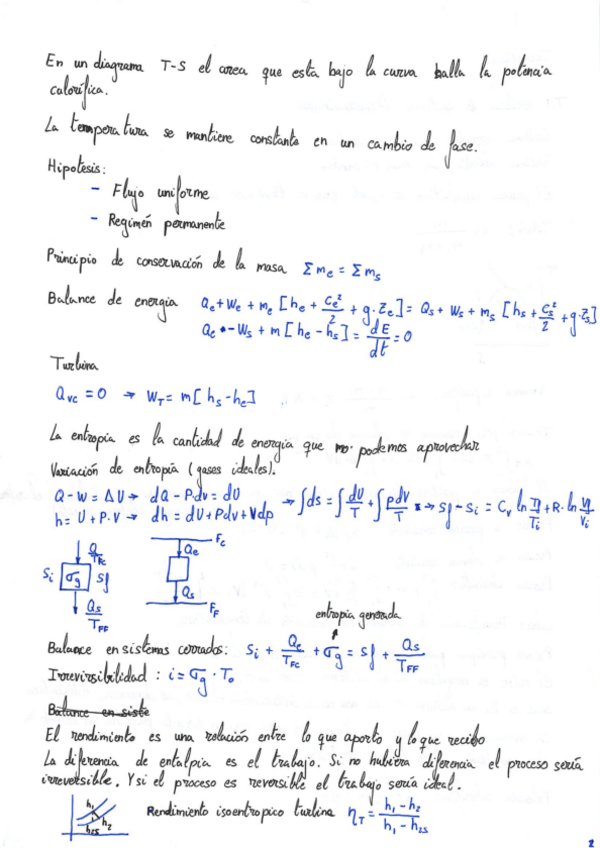 En un diagrama T-S el area que esta bajo la curva halla la potencia
calorífica.
La temperatura se mantiene constante en un cambio de fase.
Hipotesis:
- Flujo uniforme
- Regimén permanente
Principio de conservación de la masa Σme = Σms
Balance de energia Qe+We+me[he+Ce²/2+g·Ze]=Qs+Ws+ms[hs+Cs²/2+g·Zs]
Qe-Ws+m[he-hs]=dE/dt=0
Turbina
Qvc=0 → WT=m[hs-he]
La entropia es la cantidad de energia que no podemos aprovechar
Variación de entropía (gases ideales).
Q-W=ΔU → dQ-Pdv=dU
h=U+P·V → dh=dU+Pdv+Vdp
→ ∫ds=∫dU/T+∫pdV/T → Sf-Si=Cv ln Tf/Ti+R·ln Vf/Vi
Q/TFC
Si σg Sf
Qs/TFF
FC
Qe
Qs
FF
entropia generada
Balance en sistemas cerrados: Si+Qe/TFC+σg=Sf+Qs/TFF
Irrevirsibilidad: i=σg·To
Balance en siste
El rendimiento es una relación entre lo que aporto y lo que recibo
La diferencia de entalpia es el trabajo. Si no hubiera diferencia el proceso sería
irreversible. Y si el proceso es reversible el trabajo sería ideal.
h1
h2
h2s
Rendimiento isoentropico turbina ηT=h1-h2/h1-h2s
2